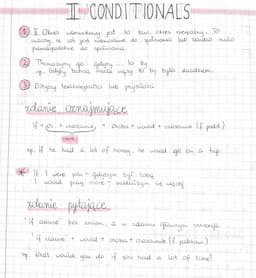 II CONDITIONALS
① II Okres warunkowy jest to tzw. okres nierealny. To
znaczy, że coś jest niemożliwe do spełnienia lub bardzo mało
prawdopodobne do spełnienia.
② Tłumaczymy go: gdyby ... to by
np. Gdyby babcia miała wąsy to by była dziadkiem.
③ Dotyczy teraźniejszości lub przyszłości
zdanie oznajmujące
If + os. + czasownik + osoba + would + czasownik (f. podst.)
np. If he had a lot of money, he would go on a trip.
* If I were you - gdybym był tobą
I would pray more - modliłbym się więcej
zdanie pytające
"if clause" bez zmian, a w zdaniu głównym inwersja
"if clause" + would + osoba + czasownik (f. podstaw.)
np. What would you do if you had a lot of time?